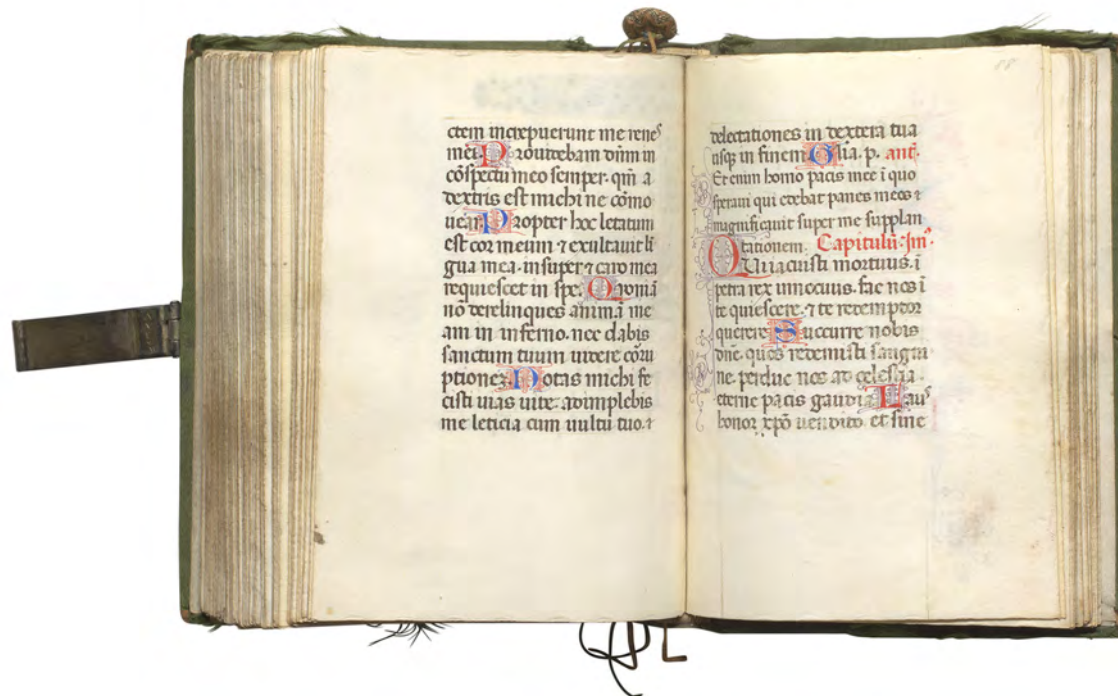 ctem increpuerunt me renes
mei. Prouidebam dñm in
cõspectu meo semper. qm̃ a
dextris est michi ne cõmo
uear. Propter hoc letatum
est cor meum ⁊ exultauit li
gua mea. insuper ⁊ caro mea
requiescet in spe. Quoniã
nõ derelinques animã me
am in inferno. nec dabis
sanctum tuum uidere cõru
ptionez. Notas michi fe
cisti uias uite. adimplebis
me leticia cum uultu tuo. ⁊
88
delectationes in dextera tua
usq; in finem. Glia. p. ant.
Et enim homo pacis mee ĩ quo
speraui qui edebat panes meos ⁊
magnificauit super me supplan
tationem. Capitulũ. Im̃.
Qui iacuisti mortuus. ĩ
petra rex innocuus. fac nos ĩ
te quiescere. ⁊ te redemptor
querere. Succurre nobis
dñe. quos redemisti sangui
ne. perduc nos ad celestia.
eterne pacis gaudia. Laus
honor xp̃o uendito. et sine